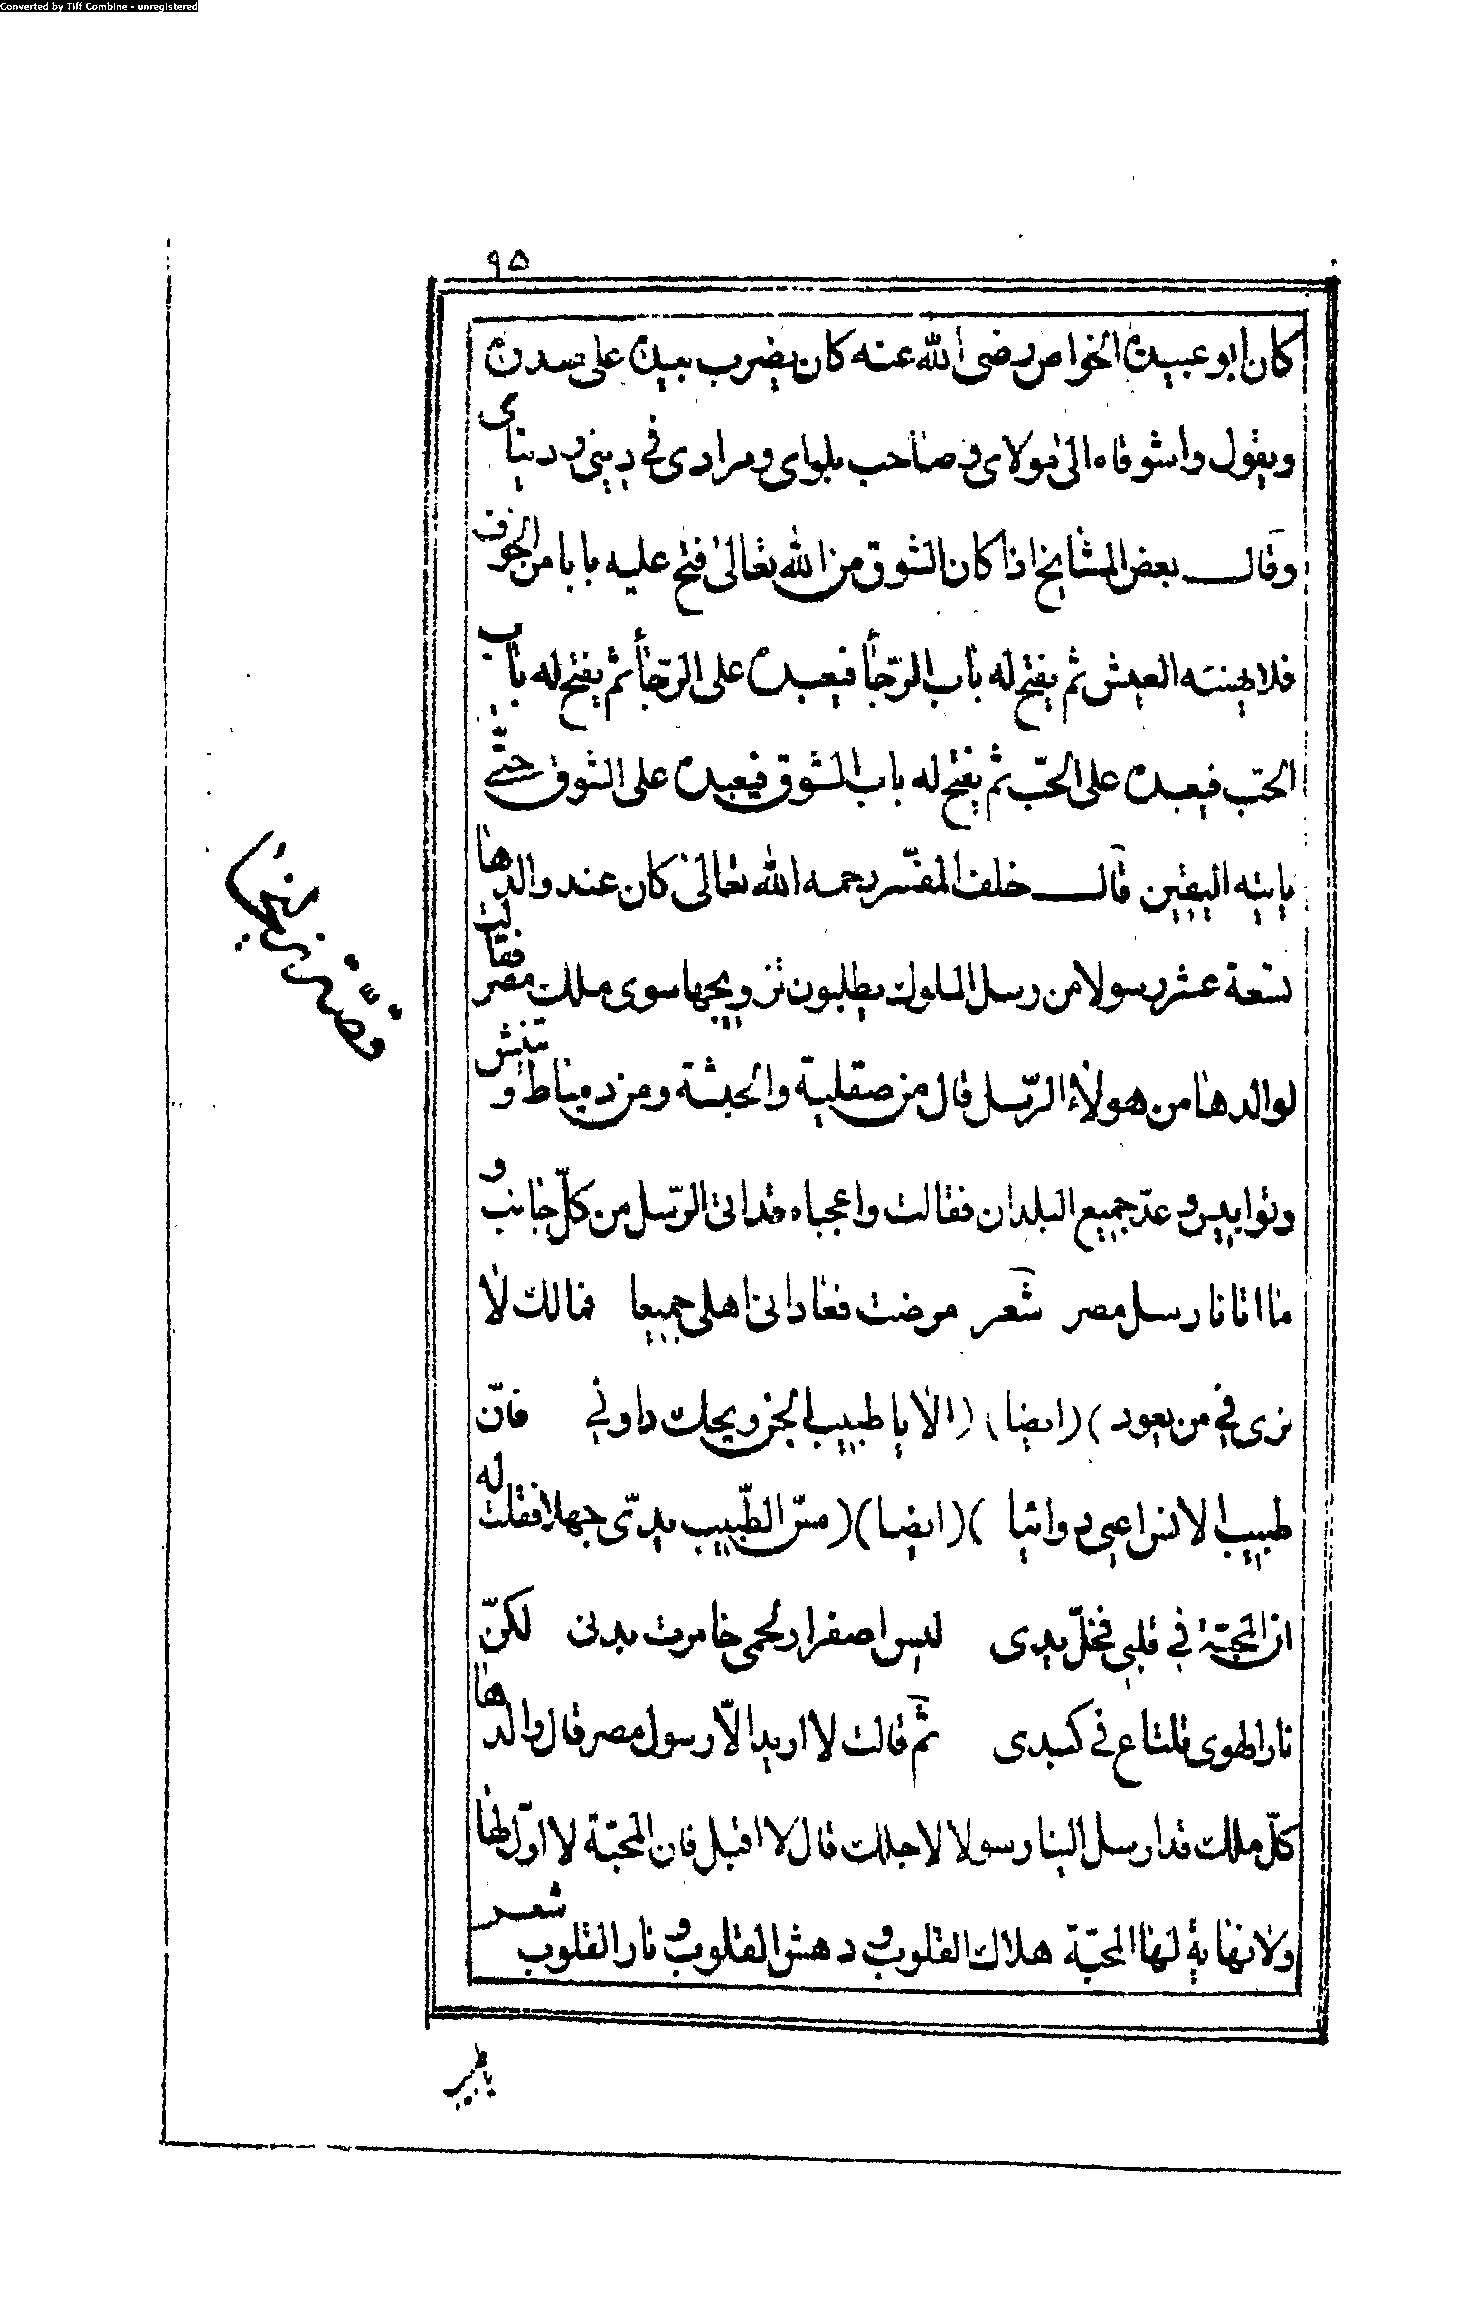 Converted by Tiff Combine - unregistered
٩٥
كان ابو عبيدة الخواص رضى الله عنه كان يضرب بيده على صدره
ويقول واشوقاه الى مولاى و صاحب بلواى ومرادى فى دينى و دنياى
وقال بعض المشايخ اذا كان الشوق من الله تعالى فتح عليه بابا من الخوف
فلا يهنيه العيش ثم يفتح له باب الرّجأ فيعبده على الرّجأ ثم يفتح له باب
الحبّ فيعبده على الحبّ ثم يفتح له باب الشوق فيعبده على الشوق حتّى
ياتيه اليقين قال خلف المفسّر رحمه الله تعالى كان عند والدها
تسعة عشر رسولا من رسل الملوك يطلبون تزويجها سوى ملك مصر فقالت
لوالدها من هولاء الرّسل قال من صقلية والحبشة ومن دمياط و تنيس
و عدّ جميع البلدان فقالت واعجباه قد اتى الرّسل من كلّ جانب و
ما اتانا رسل مصر شعر مرضت فعادنى اهلى جميعا فمالك لا
ترى فى من يعود ) (ايضا) (الا يا طبيب الجن ويحك داونى فانّ
طبيب الانس اعيى دوائيا ) (ايضا) (مسّ الطّبيب يدىّ جهلا فقلت له
انّ المحبّة فى قلبى فخلّ يدى ليس اصفرار لحمى خامرت بدنى لكنّ
نار الهوى تلتاع فى كبدى ثم قالت لا اريد الاّ رسول مصر قال والدها
كلّ ملك قد ارسل الينا رسولا لاجلك قال لا اقبل فان المحبّة لا اوّل لها
ولا نهاية لها المحبّة هلاك القلوب و دهش القلوب و نار القلوب شعر
قصّة زليخا